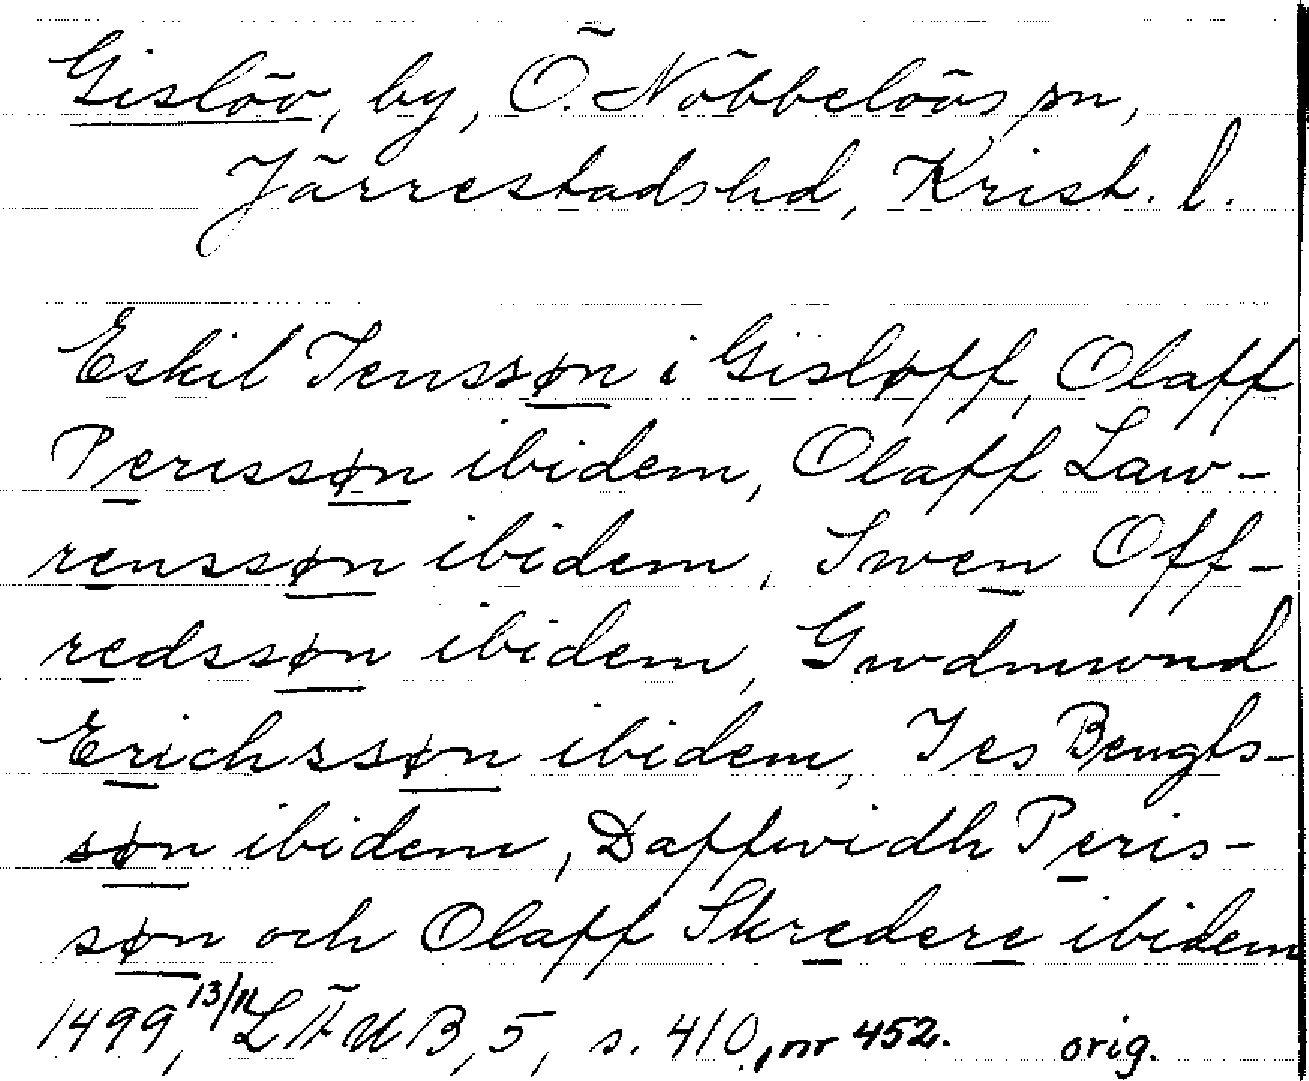 Gislöv, by, Ö. Nöbbelövs sn,
Järrestads hd, Krist. l.
Eskil Jenssøn i Gisløff, Olaff
Perissøn ibidem, Olaff Law-
renssøn ibidem, Swen Off-
redssøn ibidem, Gwdmwnd
Erichssøn ibidem, Jes Bengts-
søn ibidem, Daffwidh Peris-
søn och Olaff Skredere ibidem
1499, 13/11 LÄUB, 5, s. 410, nr 452. orig.